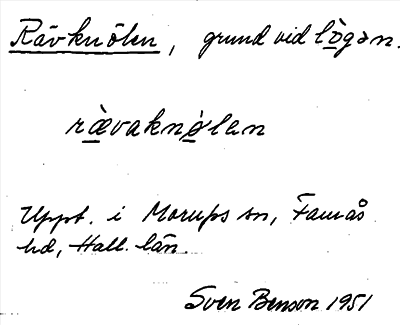 Rävknölen, grund vid lògən.
rævaknø̀lan
Uppt. i Morups sn, Faurås
hd, Hall. län.
Sven Benson 1951